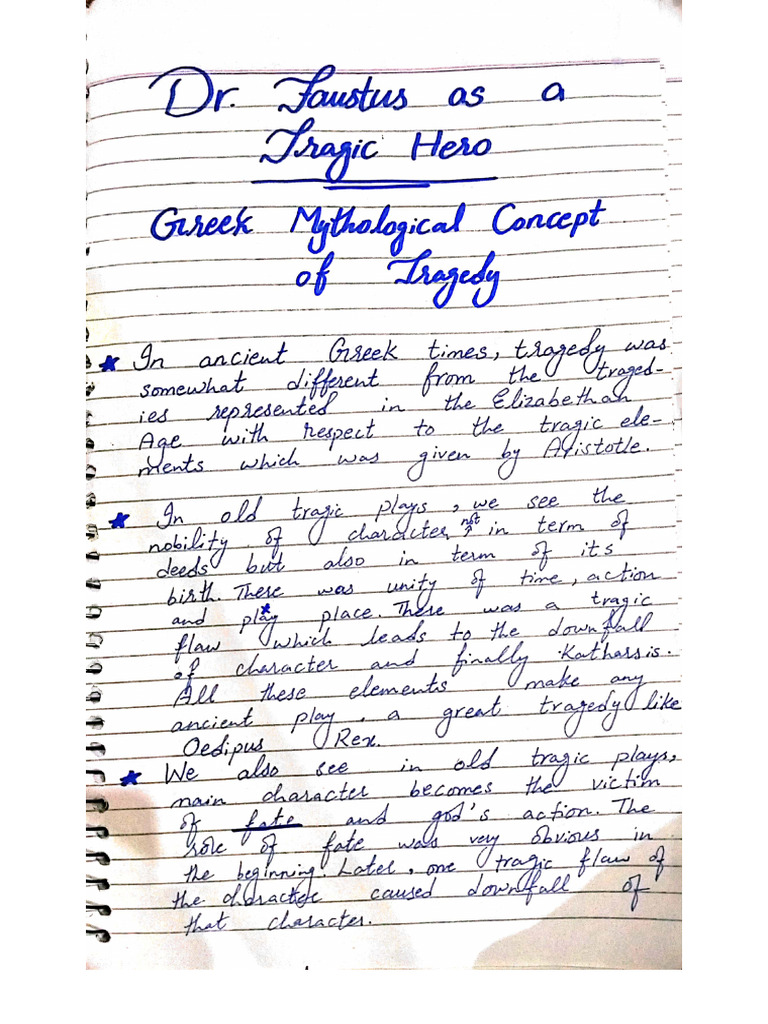 Dr. Faustus as a
Tragic Hero
Greek Mythological Concept
of Tragedy
* In ancient Greek times, tragedy was
somewhat different from the traged-
ies represented in the Elizabethan
Age with respect to the tragic ele-
ments which was given by Aristotle.
* In old tragic plays, we see the
nobility of character, not in term of
deeds but also in term of its
birth. There was unity of time, action
and play place. There was a tragic
flaw which leads to the downfall
of character and finally Katharsis.
All these elements make any
ancient play, a great tragedy like
Oedipus Rex.
* We also see in old tragic plays,
main character becomes the victim
of fate and god's action. The
role of fate was very obvious in
the beginning. Later, one tragic flaw of
the character caused downfall of
that character.